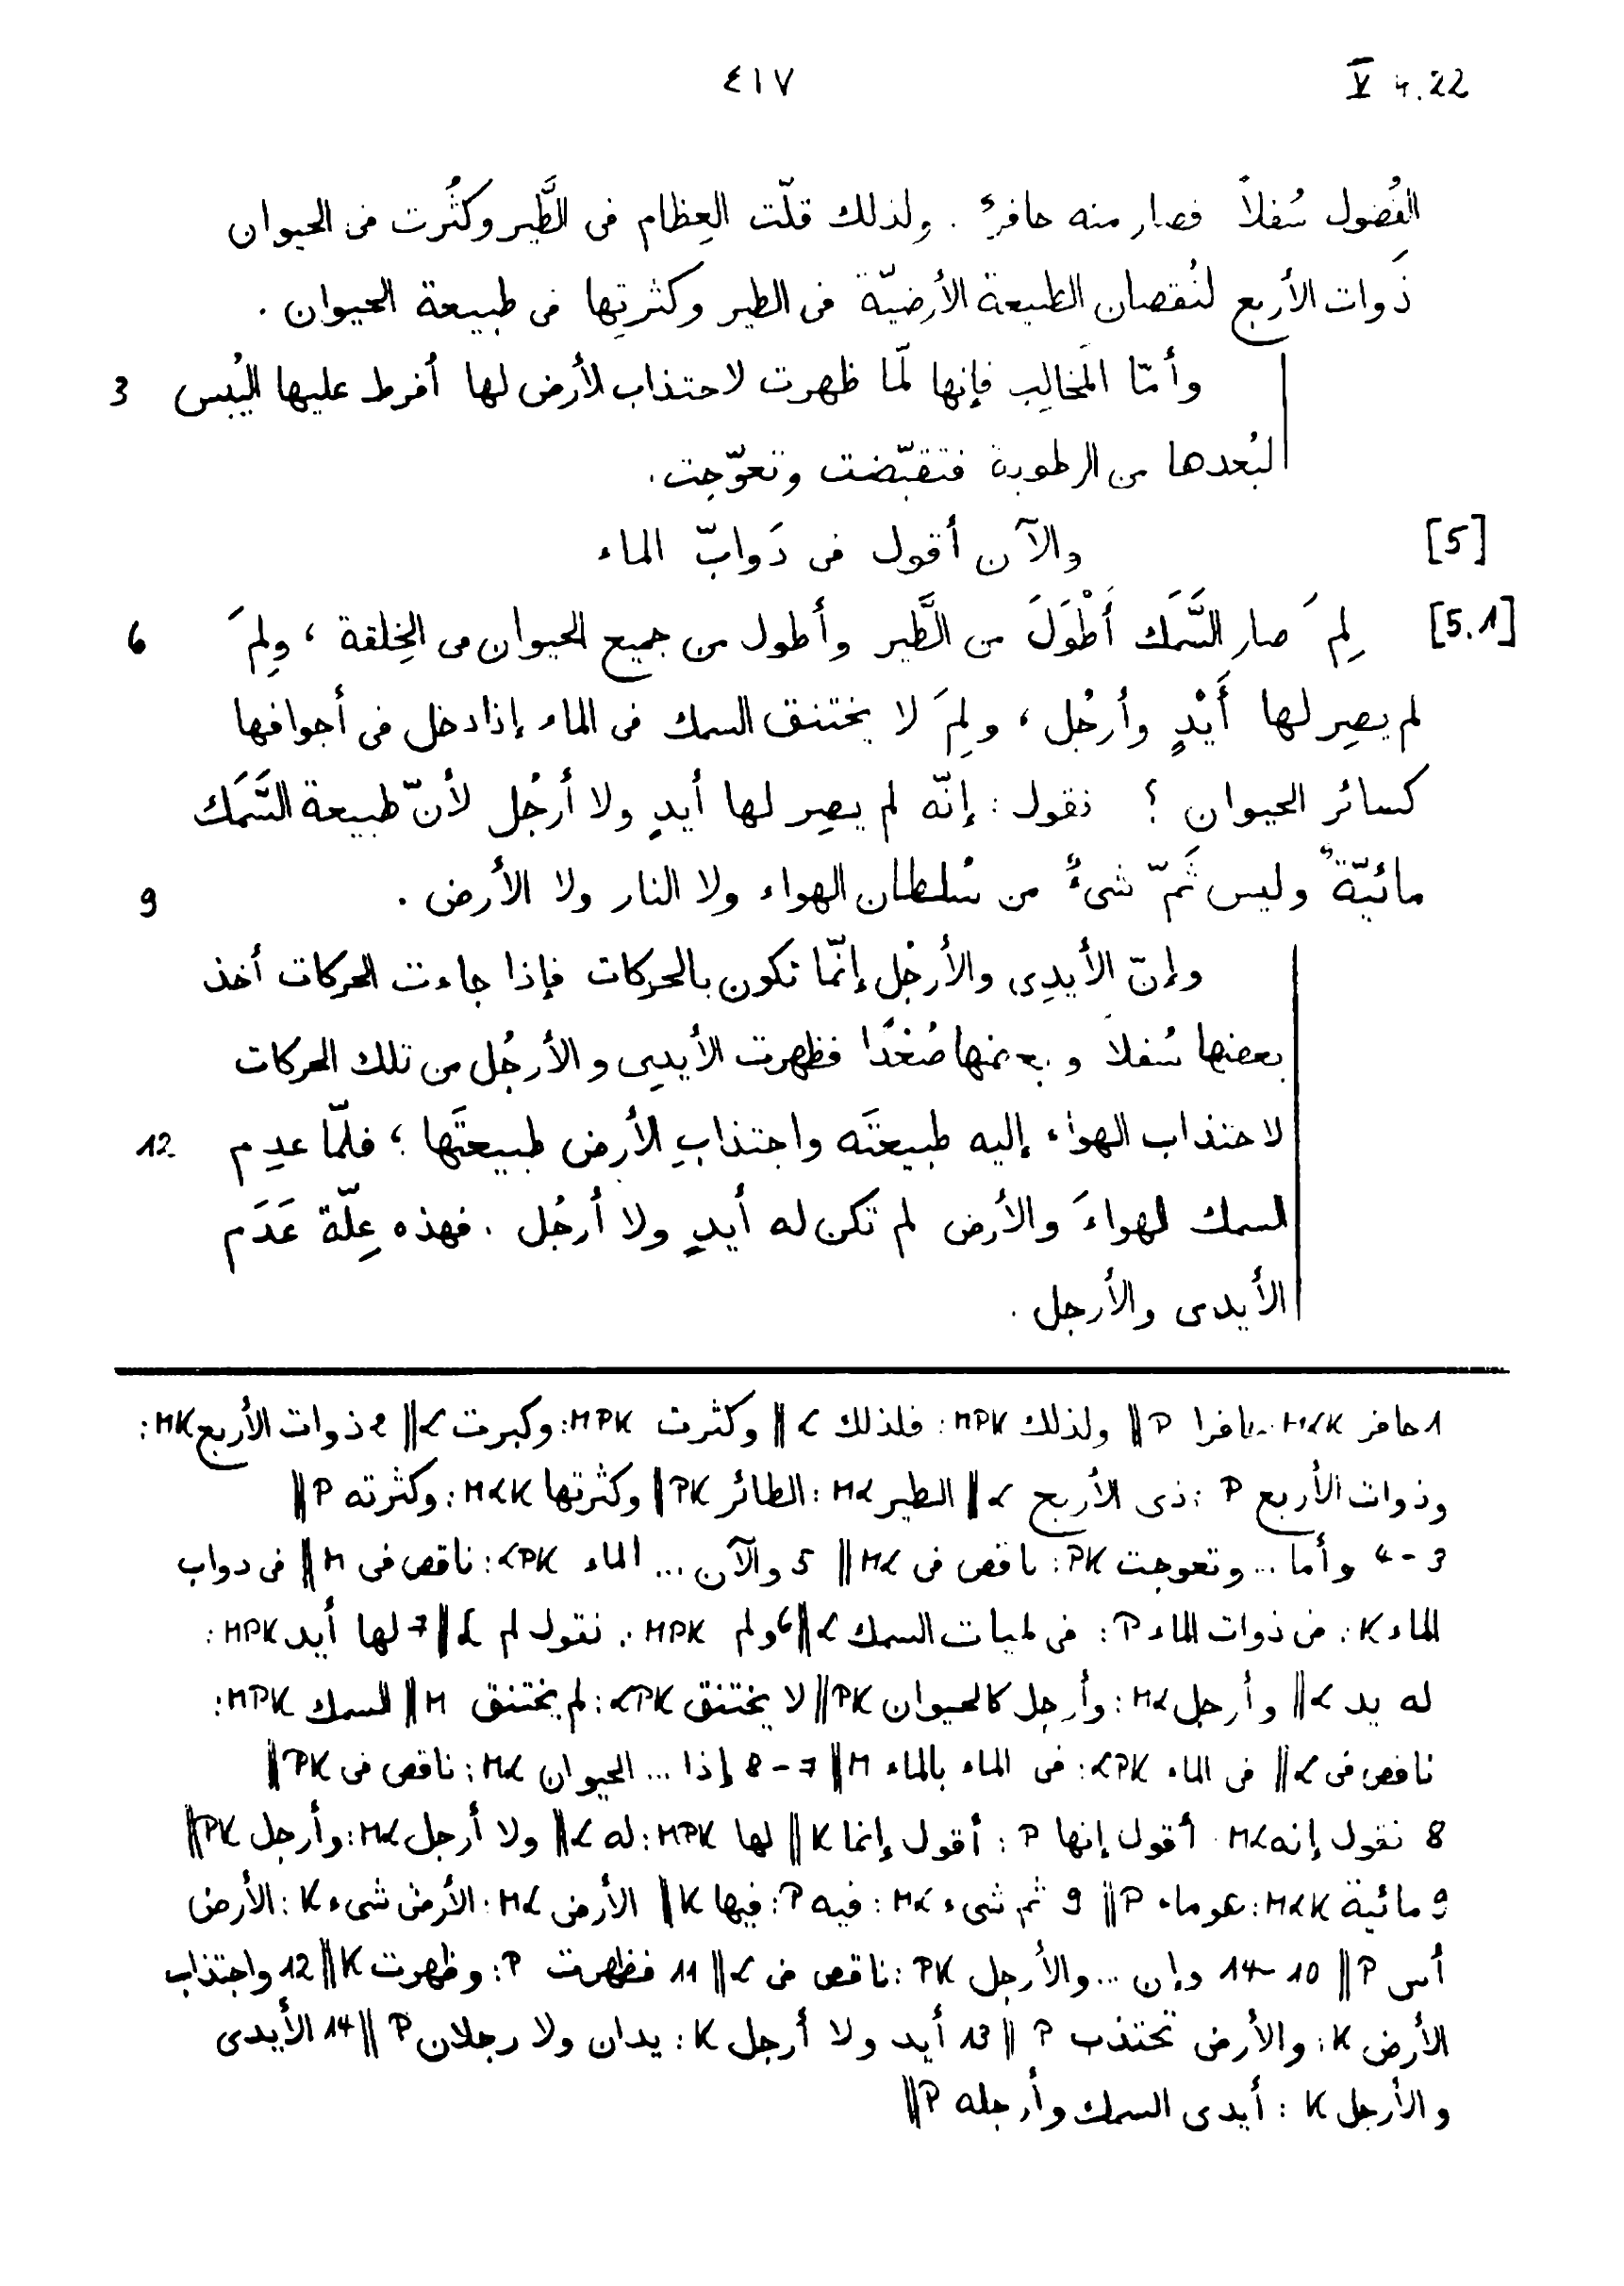 ٤١٧ V 4.22
الفُضول سُفلاً فصار منه حافرٌ . ولذلك قلّت العِظام فى الطَّير وكثُرت فى الحيوان
ذَوات الأربع لنُقصان الطبيعة الأرضيّة فى الطير وكثرتِها فى طبيعة الحيوان .
وأمّا المَخالِب فإنها لمّا ظهرت لاجتذاب الأرض لها أفرط عليها اليُبس 3
لبُعدها من الرطوبة فتقبّضت وتعوّجت .
[5] والآن أقول فى دَوابّ الماء
[5.1] لِمَ صار السَّمَك أَطْوَلَ من الطَّير وأطول من جميع الحيوان فى الخِلقة ، ولِمَ 6
لم يصِر لها أَيْدٍ وأرجُل ، ولِمَ لا يختنق السمك فى الماء إذا دخل فى أجوافها
كسائر الحيوان ؟ نقول : إنّه لم يصِر لها أيدٍ ولا أرجُل لأنّ طبيعة السَّمَك
مائيّةٌ وليس ثَمّ شىءٌ من سُلطان الهواء ولا النار ولا الأرض . 9
وإنّ الأيدِى والأرجُل إنّما تكون بالحركات فإذا جاءت الحركات أخذ
بعضها سُفلاً وبعضها صُعْدًا فظهرت الأيدِى والأرجُل من تلك الحركات
لاجتذاب الهواء إليه طبيعتَه واجتذابِ الأرض طبيعتَها ؛ فلمّا عدِم 12
السمك الهواءَ والأرض لم تكن له أيدٍ ولا أرجُل . فهذه عِلّة عَدَم
الأيدى والأرجل .
1 حافر MαK : حافرا P || ولذلك MPK : فلذلك α || وكثرت MPK : وكبرت α || 2 ذوات الأربع MK :
وذوات الأربع P : ذى الأربع α || الطير Mα : الطائر PK || وكثرتها MαK : وكثرته P ||
3 - 4 وأما ... وتعوجت PK : ناقص فى Mα || 5 والآن ... الماء αPK : ناقص فى M || فى دواب
الماء K : فى ذوات الماء P : فى لميات السمك α || 6 ولم MPK : نقول لم α || 7 لها أيد MPK :
له يد α || وأرجل Mα : وأرجل كالحيوان PK || لا يختنق αPK : لم يختنق M || السمك MPK :
ناقص فى α || فى الماء αPK : فى الماء بالماء M || 7 - 8 إذا ... الحيوان Mα : ناقص فى PK ||
8 نقول إنه Mα : أقول إنها P : أقول إنما K || لها MPK : له α || ولا أرجل Mα : وأرجل PK ||
9 مائية MαK : هو ماء P || 9 ثم شىء Mα : فيه P : فيها K || الأرض Mα : الأرض شىء K : الأرض
P || 10 - 14 وإن ... والأرجل PK : ناقص فى α || 11 فظهرت P : وظهرت K || 12 واجتذاب
الأرض K : والأرض تجتذب P || 13 أيد ولا أرجل K : يدان ولا رجلان P || 14 الأيدى
والأرجل K : أيدى السمك وأرجله P ||